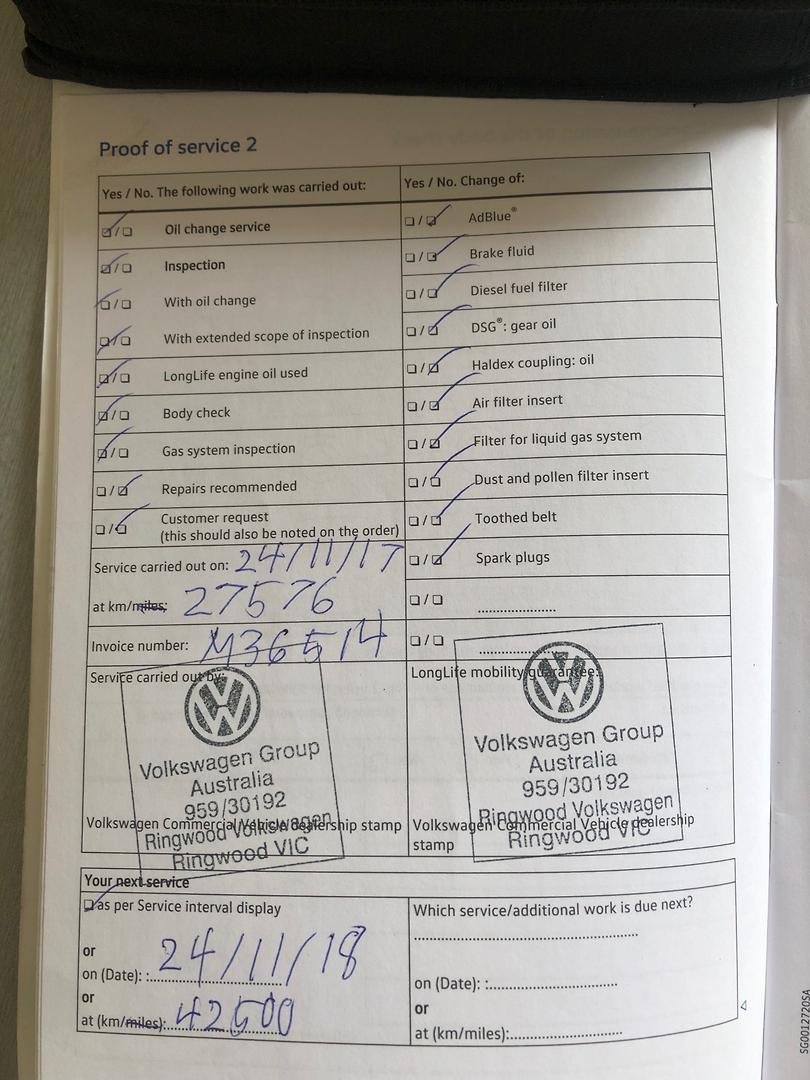 Proof of service 2
Yes / No. The following work was carried out:
Oil change service
Inspection
With oil change
With extended scope of inspection
LongLife engine oil used
Body check
Gas system inspection
Repairs recommended
Customer request
(this should also be noted on the order)
Service carried out on: 24/11/17
at km/miles: 27576
Invoice number: M36514
Yes / No. Change of:
AdBlue®
Brake fluid
Diesel fuel filter
DSG®: gear oil
Haldex coupling: oil
Air filter insert
Filter for liquid gas system
Dust and pollen filter insert
Toothed belt
Spark plugs
Service carried out by:
Volkswagen Group
Australia
959/30192
Ringwood Volkswagen
Ringwood VIC
Volkswagen Commercial Vehicle dealership stamp
LongLife mobility guarantee:
Volkswagen Group
Australia
959/30192
Ringwood Volkswagen
Ringwood VIC
Volkswagen Commercial Vehicle dealership
stamp
Your next service
as per Service interval display
or
on (Date): : 24/11/18
or
at (km/miles): 42500
Which service/additional work is due next?
on (Date): :
or
at (km/miles):
SG0012720SA